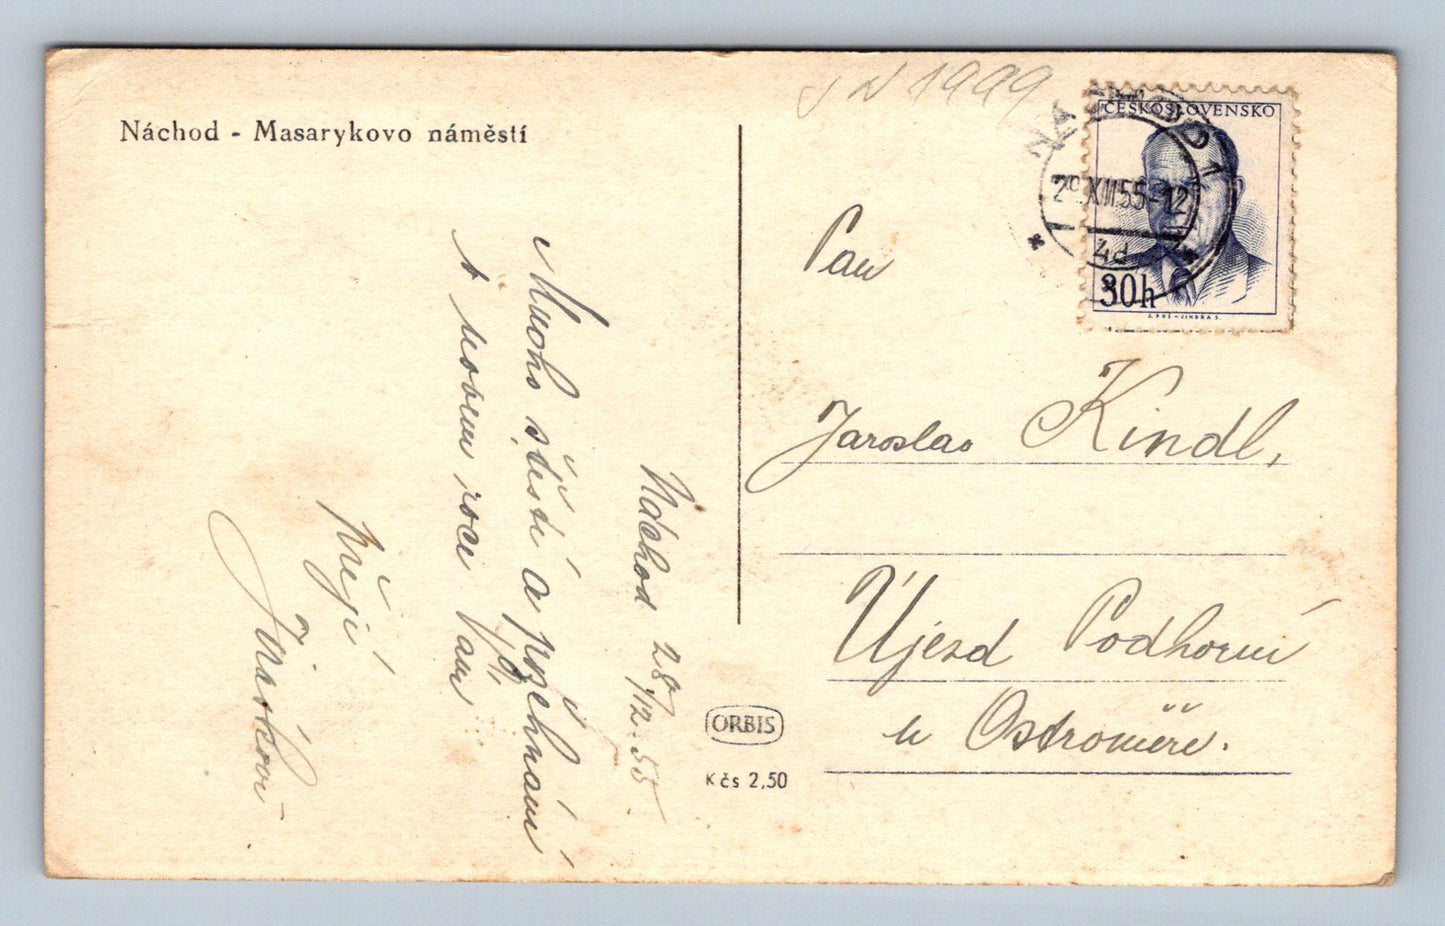 Náchod - Masarykovo náměstí
ČESKOSLOVENSKO
30h
XII 55-12
4d
Náchod 28/12. 55.
Mnoho štěstí a požehnání
v novém roce Vám
přejí
Jiráskovi
Pan
Jaroslav Kindl,
Újezd Podhorní
u Ostroměře.
ORBIS
Kčs 2,50